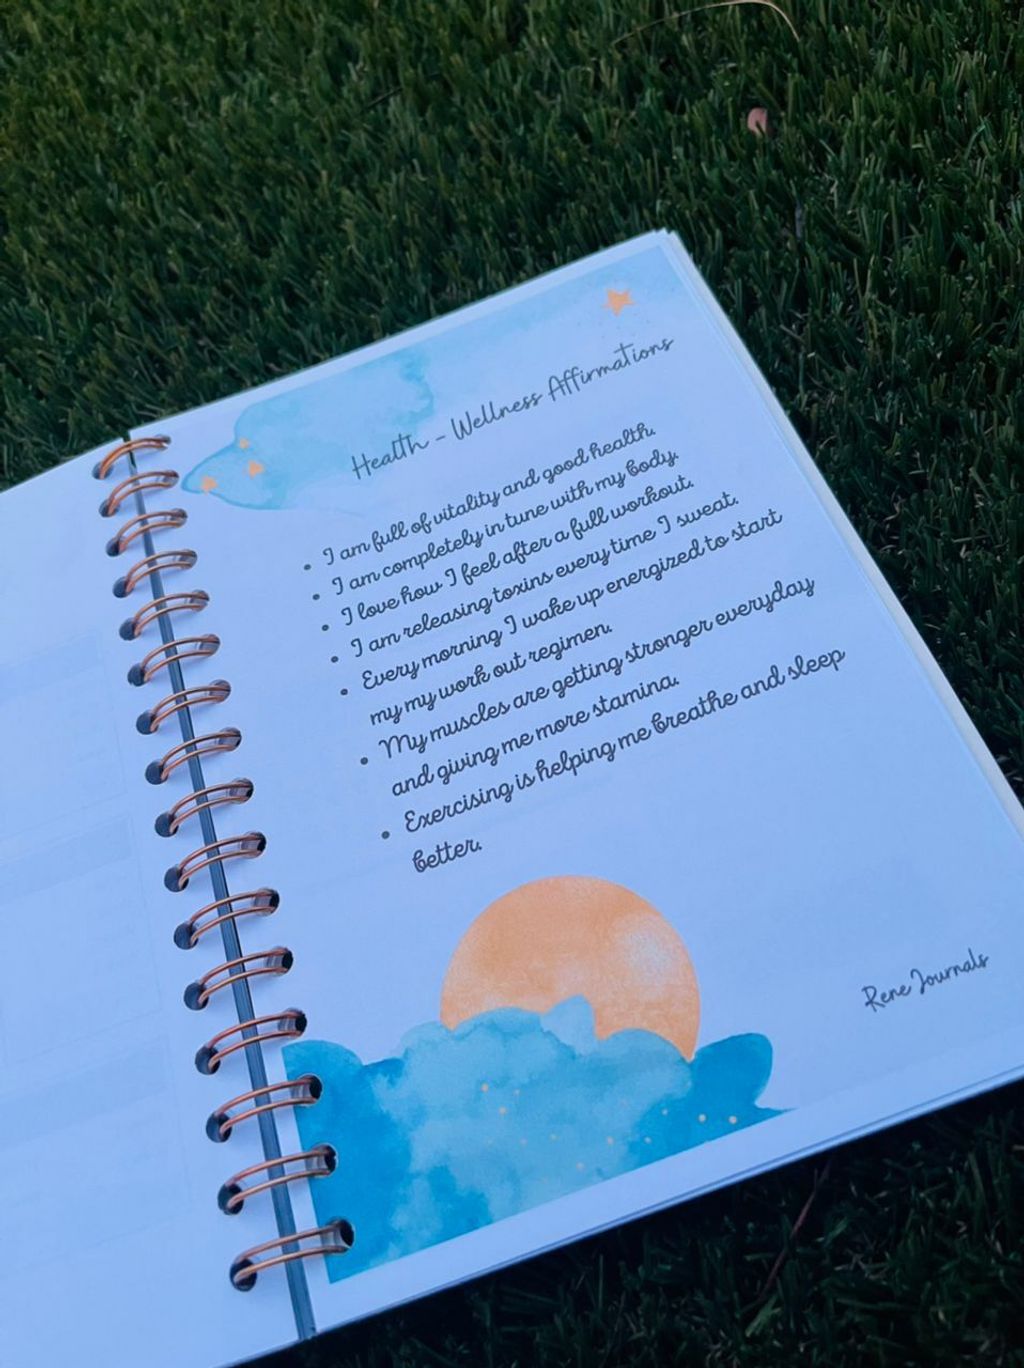 Health - Wellness Affirmations
• I am full of vitality and good health.
• I am completely in tune with my body.
• I love how I feel after a full workout.
• I am releasing toxins every time I sweat.
• Every morning I wake up energized to start
my my work out regimen.
• My muscles are getting stronger everyday
and giving me more stamina.
• Exercising is helping me breathe and sleep
better.
Rene Journals